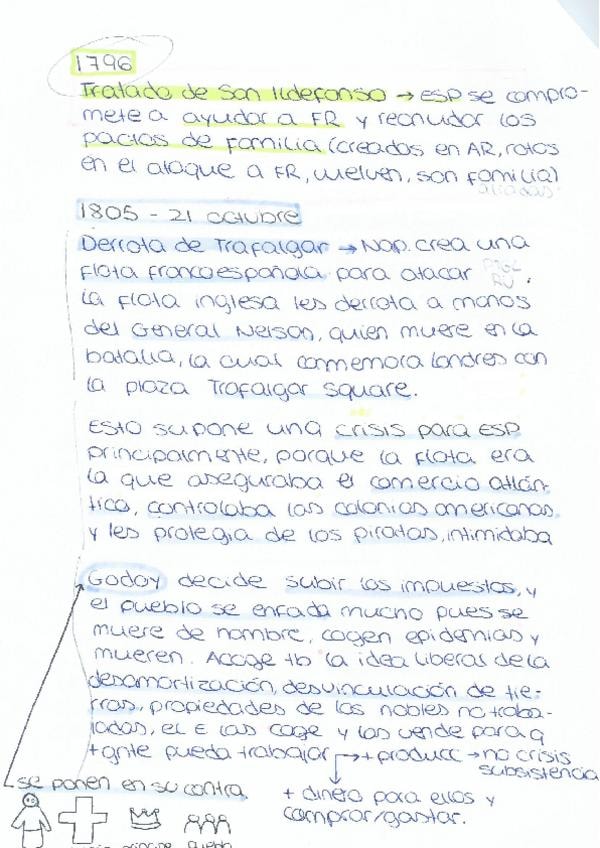 1796
Tratado de San Ildefonso → ESP se compro-
mete a ayudar a FR y reanudar los
pactos de familia (creados en AR, rotos
en el ataque a FR, vuelven, son familia)
aliados
1805 - 21 octubre
Derrota de Trafalgar → Nap. crea una
flota francoespañola para atacar RU.
La flota inglesa les derrota a manos
del General Nelson, quien muere en la
batalla, la cual conmemora Londres con
la plaza Trafalgar Square.
Esto supone una crisis para ESP
principalmente, porque la flota era
la que aseguraba el comercio atlán-
tico, controlaba las colonias americanas
y les protegía de los piratas, intimidaba
Godoy decide subir los impuestos, y
el pueblo se enfada mucho pues se
muere de hambre, cogen epidemias y
mueren. Acoge tb la idea liberal de la
desamortización, desvinculación de tie-
rras, propiedades de los nobles no traba-
jadas, el E las coge y las vende para q
+ gnte pueda trabajar → + producc → no crisis
subsistencia
se ponen en su contra
+ dinero para ellos y
comprar/gastar.
príncipe pueblo